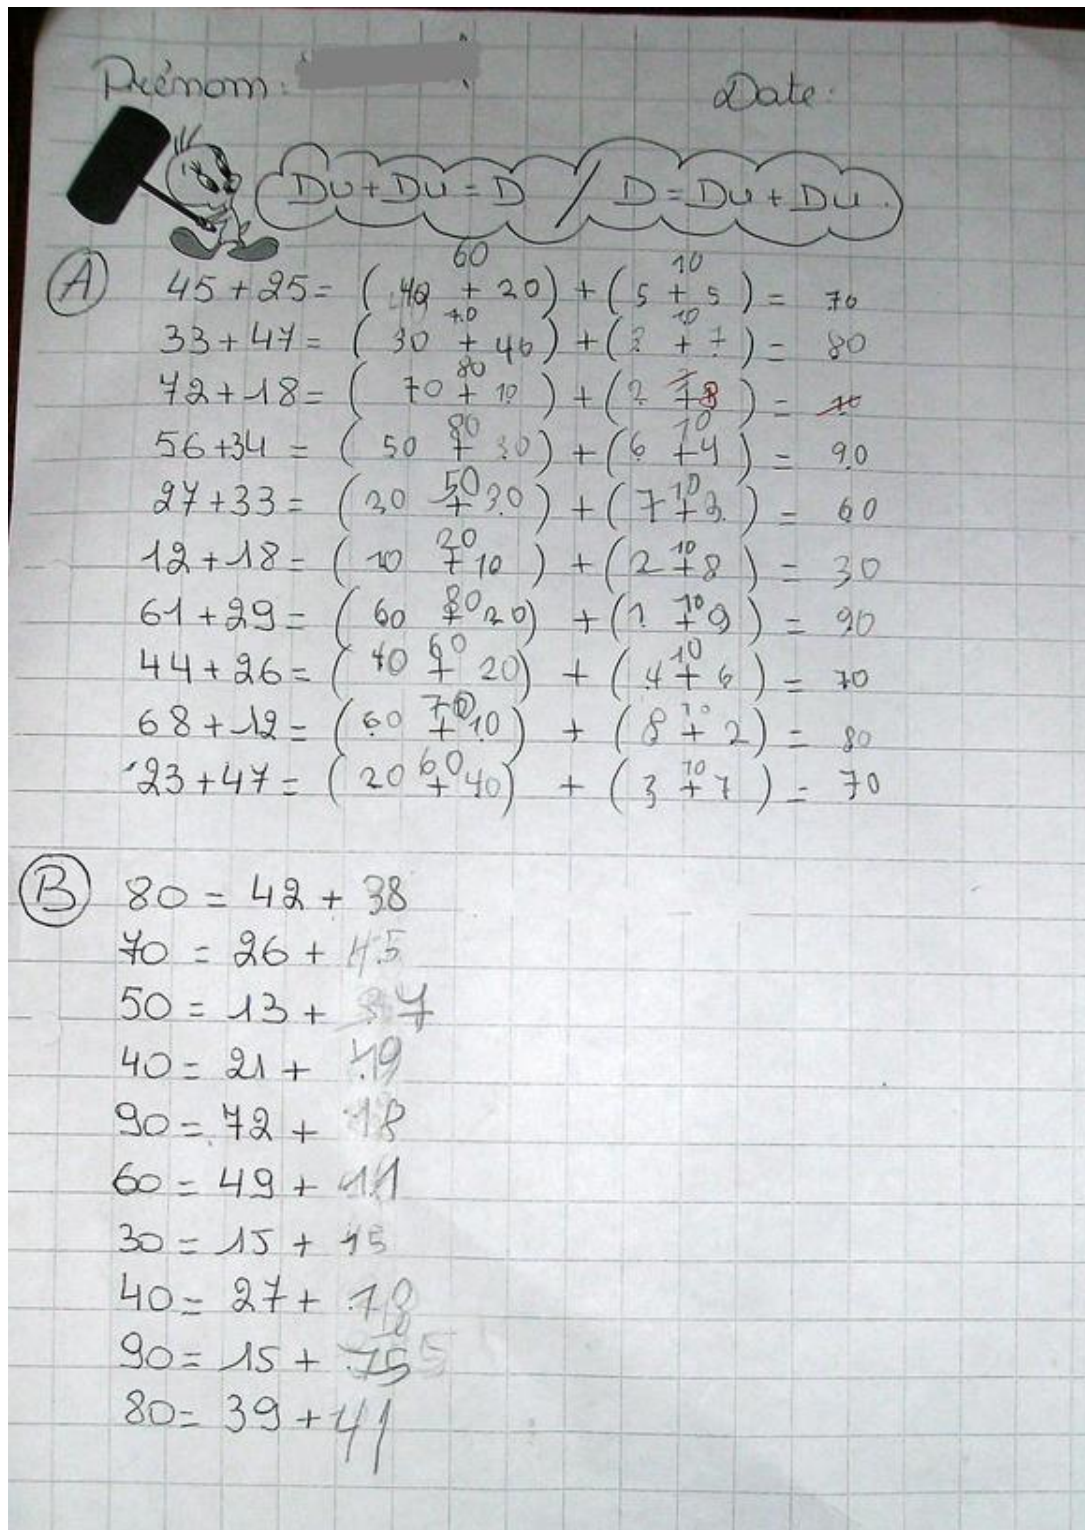 Prénom: Date:
Du + Du = D / D = Du + Du.
A
60 10
45 + 25 = ( 40 + 20 ) + ( 5 + 5 ) = 70
70 10
33 + 47 = ( 30 + 40 ) + ( 3 + 7 ) = 80
80
72 + 18 = ( 70 + 10 ) + ( 2 + 8 ) =
80 10
56 + 34 = ( 50 + 30 ) + ( 6 + 4 ) = 90
50 10
27 + 33 = ( 20 + 30 ) + ( 7 + 3 ) = 60
20 10
12 + 18 = ( 10 + 10 ) + ( 2 + 8 ) = 30
80 10
61 + 29 = ( 60 + 20 ) + ( 1 + 9 ) = 90
60 10
44 + 26 = ( 40 + 20 ) + ( 4 + 6 ) = 70
70 10
68 + 12 = ( 60 + 10 ) + ( 8 + 2 ) = 80
60 10
23 + 47 = ( 20 + 40 ) + ( 3 + 7 ) = 70
B
80 = 42 + 38
70 = 26 + 45
50 = 13 + 37
40 = 21 + 19
90 = 72 + 18
60 = 49 + 11
30 = 15 + 15
40 = 27 +
90 = 15 + 75
80 = 39 + 41